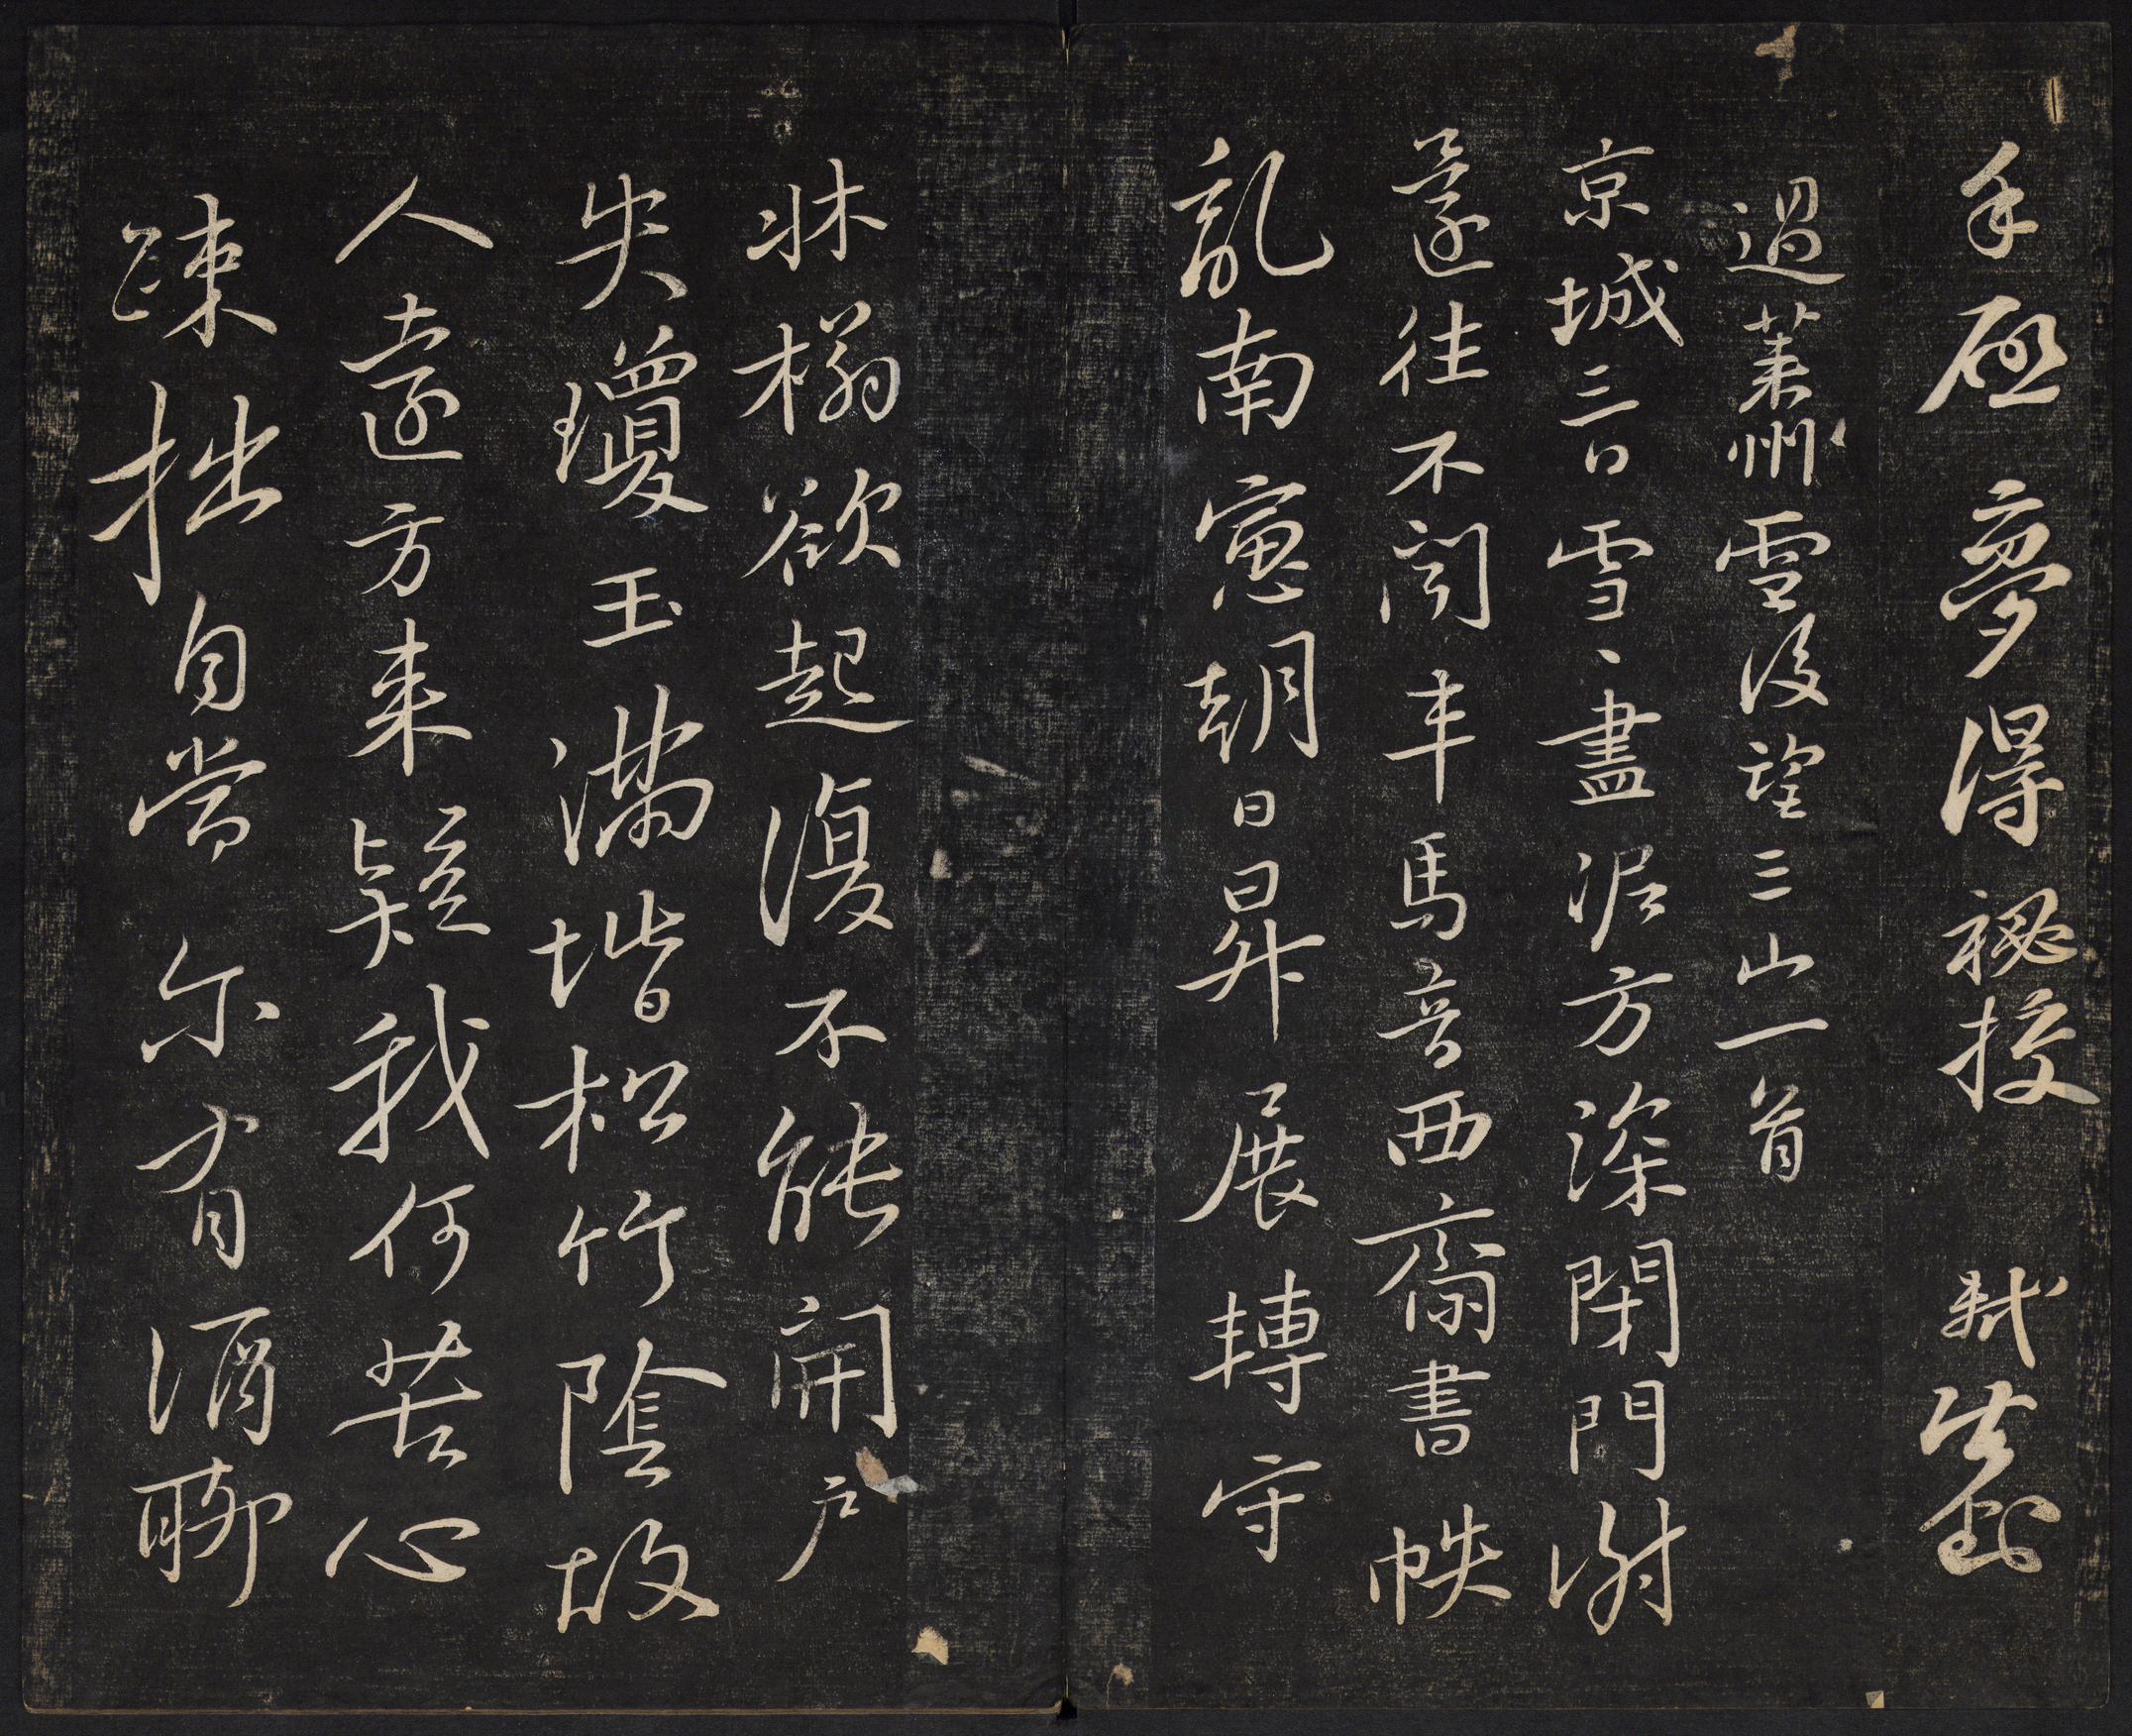 手啟夢得秘校 軾封
過萊州雪後望三山一首
京城三日雪、盡泥方深閉門謝
還往不聞車馬音西齋書帙
亂南窓朝日昇展轉守
牀榻欲起復不能開戶
失瓊玉滿堦松竹陰故
人遠方来疑我何苦心
踈拙自當尔有酒聊